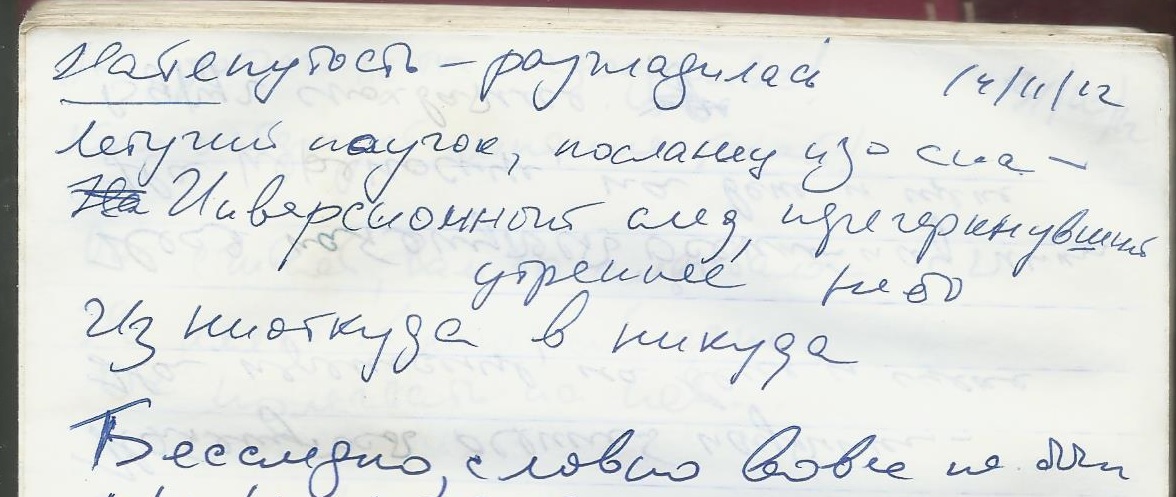 Натянутость – разгладилась 14/11/12
Летучий паучок, посланец изо сна –
Инверсионный след, перечеркнувший
утреннее небо
Из ниоткуда в никуда
Бесследно, словно вовсе не